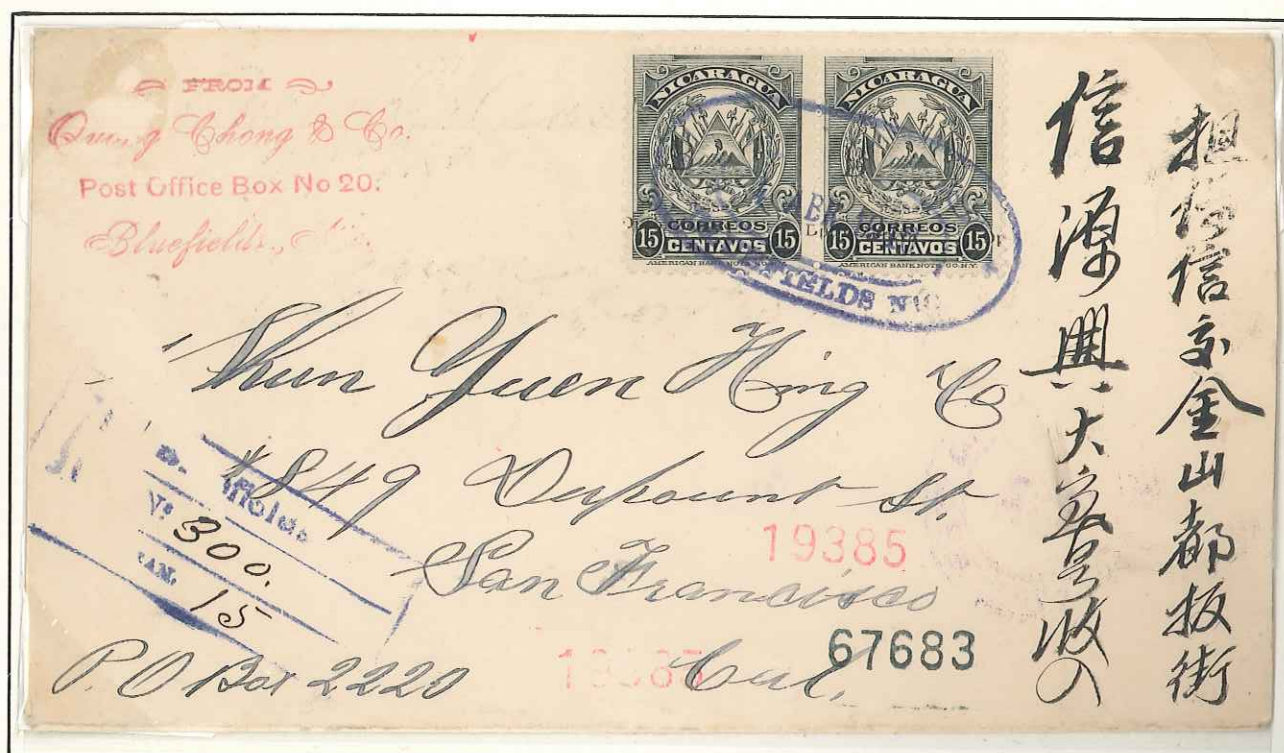 FROM
Chong & Co.
Post Office Box No 20.
Bluefields,
NICARAGUA
CORREOS
15 CENTAVOS 15
AMERICAN BANK NOTE CO. N.Y.
NICARAGUA
CORREOS
15 CENTAVOS 15
AMERICAN BANK NOTE CO. N.Y.
FIELDS NIC
Shun Yuen Hing Co
#849 Dupount St.
San Francisco
Cal.
P.O Box 2220
Nº 300.
15
19385
19385
67683
信交金山都扳街
信源興大宝号收入